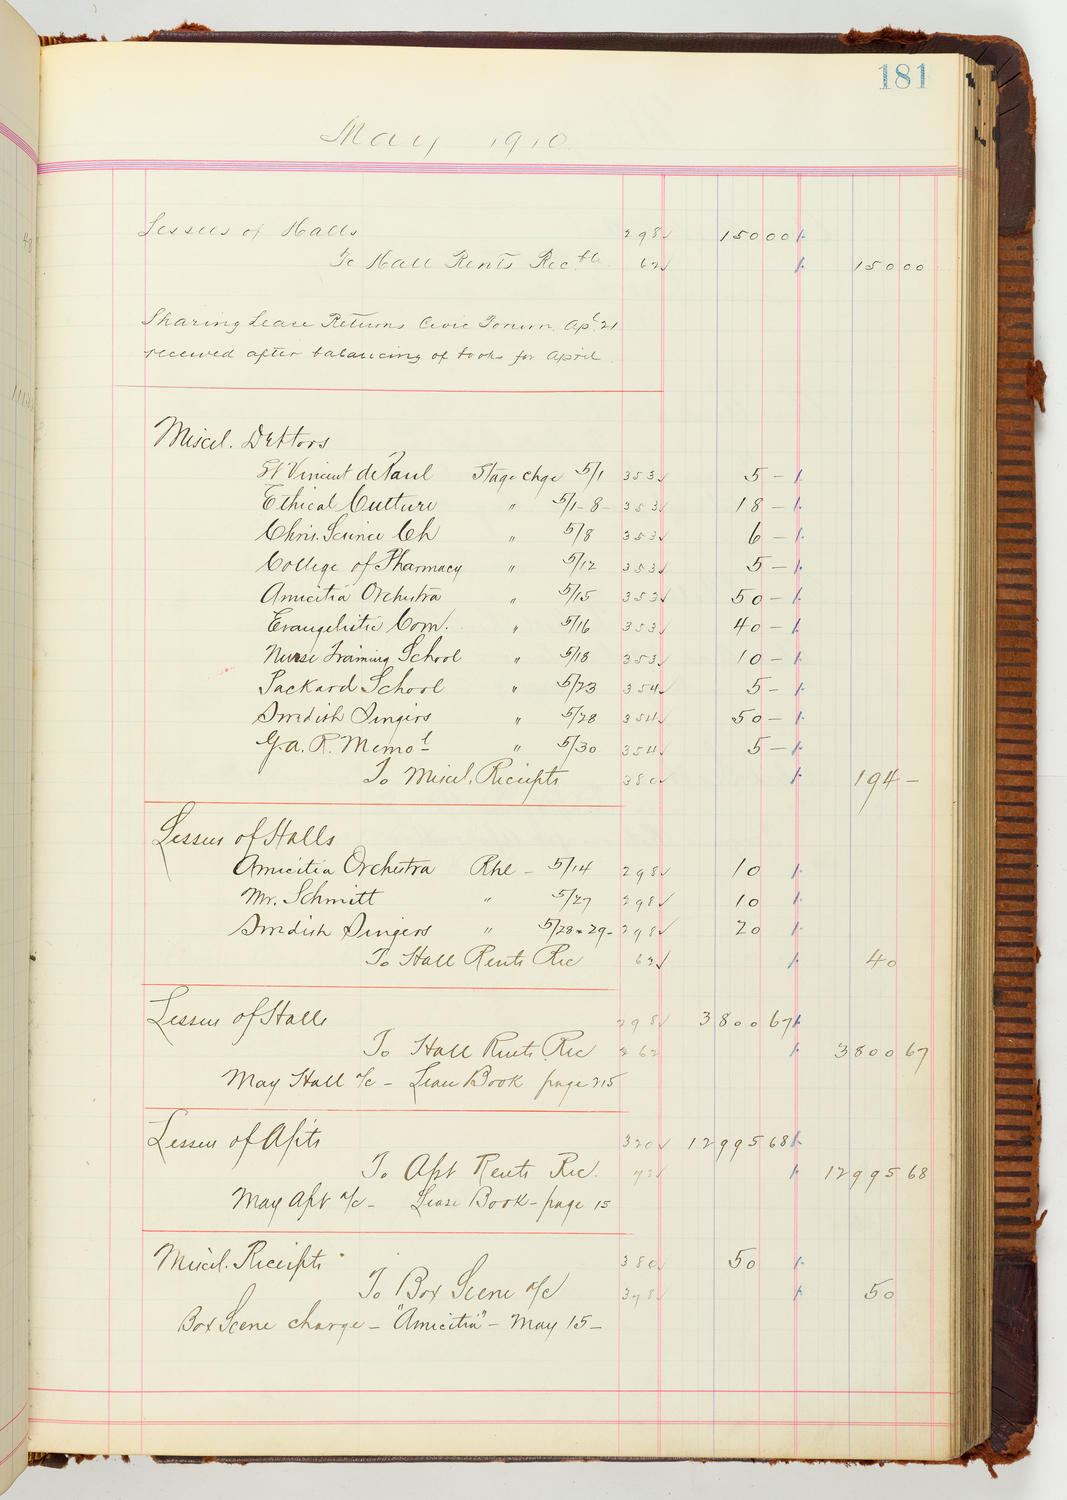 181
May 1910
Lessees of Halls 298 150 00
To Hall Rents Recble 62 150 00
Sharing Lease Returns Civic Forum Apl 21
received after balancing of books for April
Miscel. Debtors
St Vincent de Paul Stage chge 5/1 353 5 -
Ethical Culture " 5/1-8- 353 18 -
Chris. Science Ch " 5/8 353 6 -
College of Pharmacy " 5/12 353 5 -
Amicitia Orchestra " 5/15 353 50 -
Evangelistic Com. " 5/16 353 40 -
Nurse Training School " 5/18 353 10 -
Packard School " 5/23 354 5 -
Swedish Singers " 5/28 354 50 -
G.A.R. Meml " 5/30 354 5 -
To Miscel. Receipts 380 194 -
Lessees of Halls
Amicitia Orchestra Rhl - 5/14 298 10
Mr. Schmitt " 5/27 298 10
Swedish Singers " 5/28-29- 298 20
To Hall Rents Rec 62 40
Lessees of Halls 298 3800 67
To Hall Rents Rec 62 3800 67
May Hall a/c - Lease Book page 215
Lessees of Apts 320 12995 68
To Apt Rents Rec. 72 12995 68
May Apt a/c - Lease Book - page 15
Miscel. Receipts 380 50
To Box Scene a/c 398 50
Box Scene charge - "Amicitia" - May 15 -